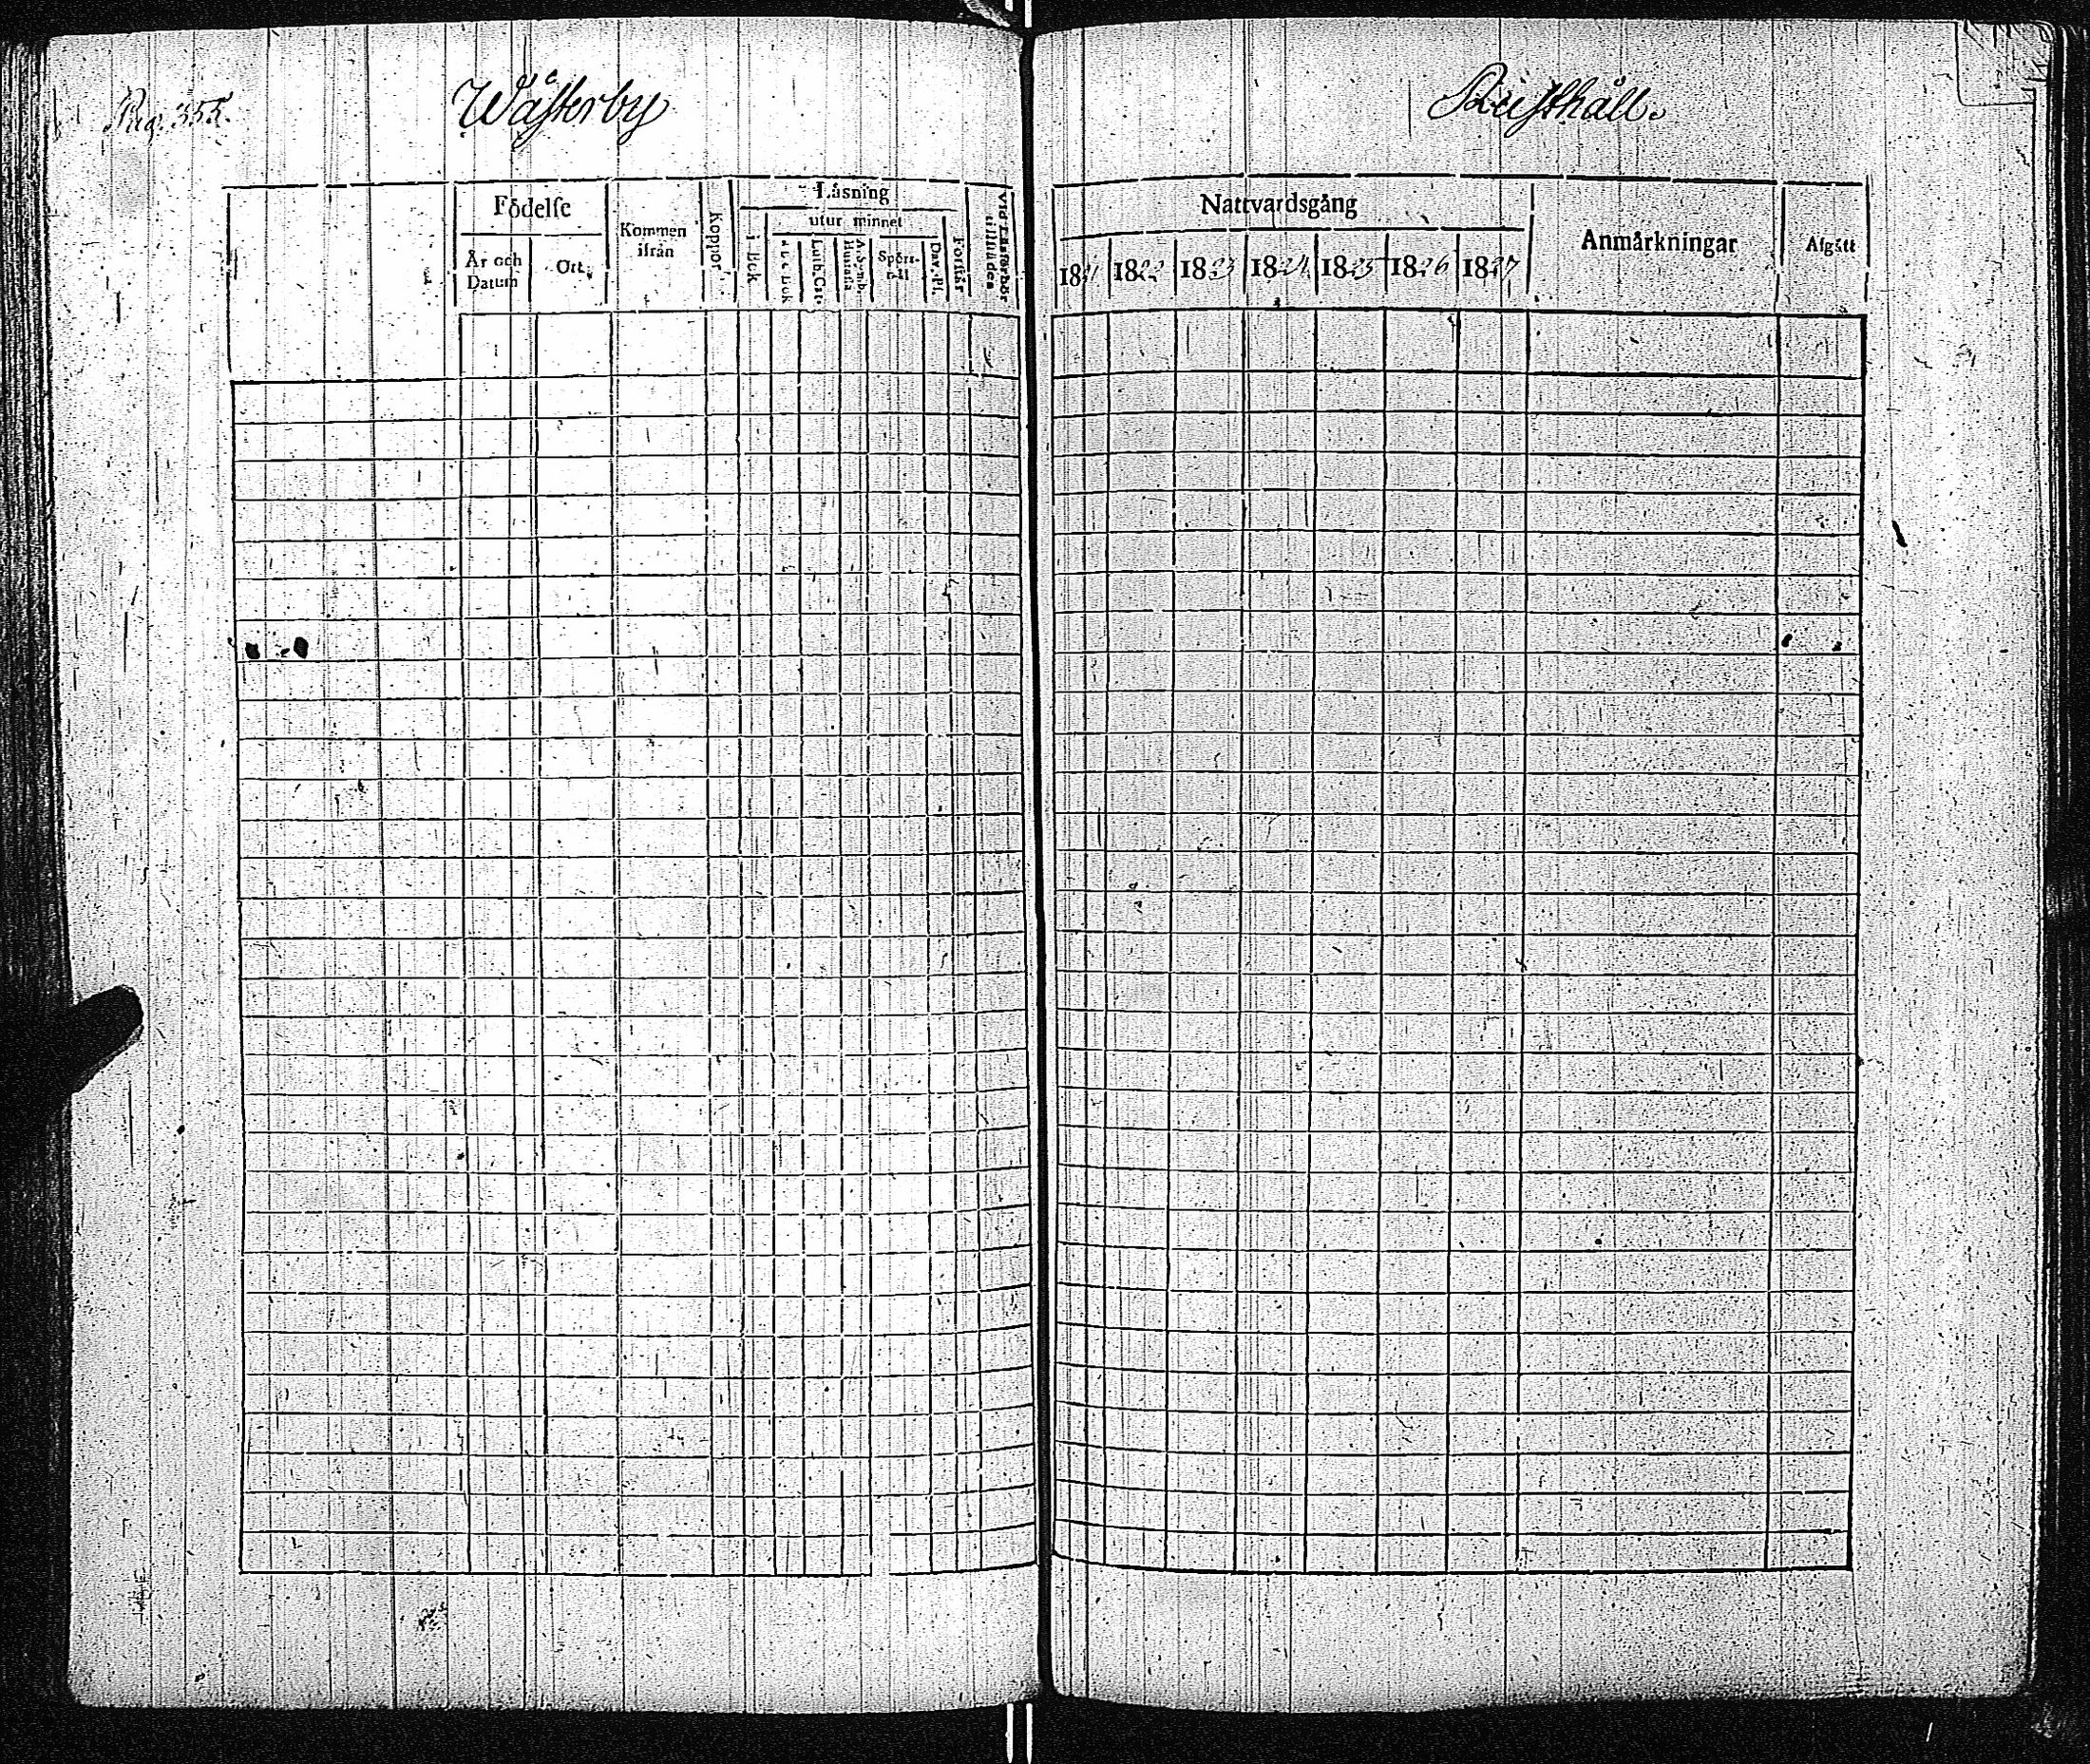 Pag. 355.
Wästerby
Rusthåll.
Födelse
År och Datum
Ort.
Kommen ifrån
Koppor
Läsning
i Bok
utur minnet
A B C Bok
Luth. Cat.
Spörs-mål
Dav. Ps.
Förstår
Vid Läsförhör tillstädes
Nattvardsgång
1821 1822 1823 1824 1825 1826 1827
Anmärkningar
Afgått